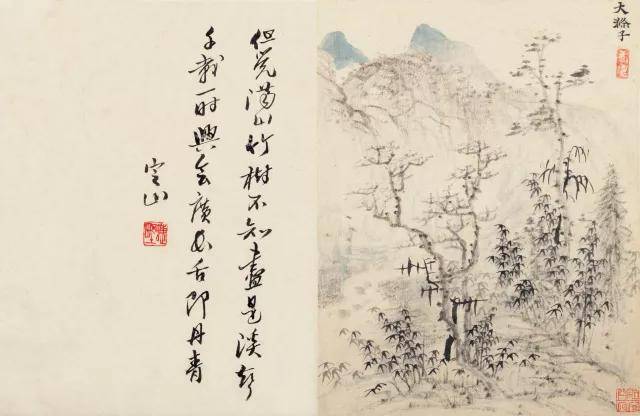 大滌子
但覺滿山竹樹不知盡是淡
千載一時興會廣長舌即丹青
定山